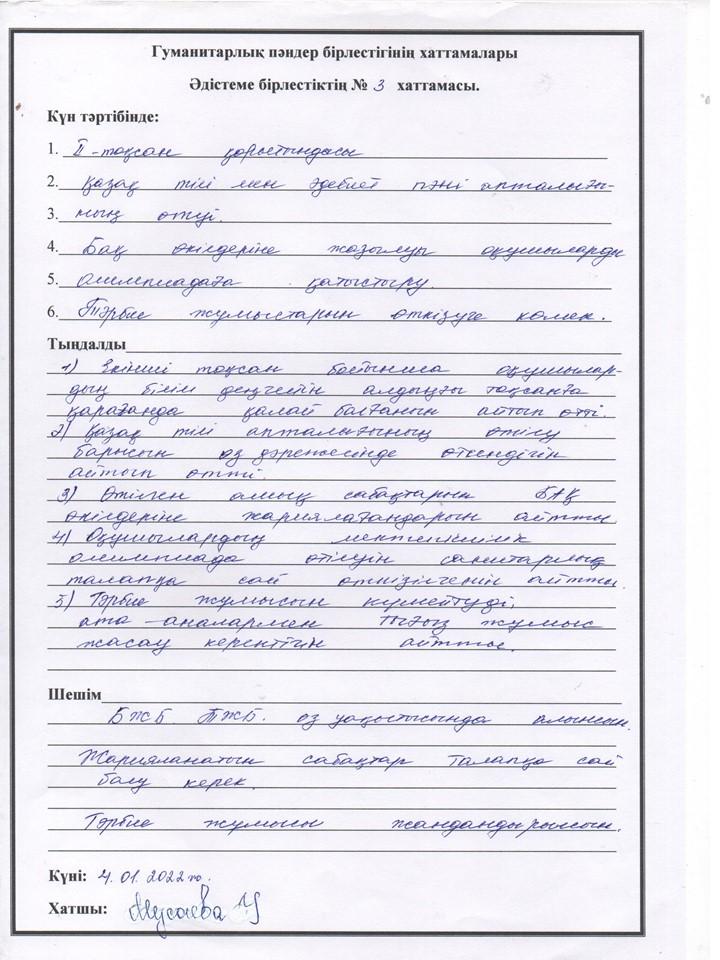 Гуманитарлық пәндер бірлестігінің хаттамалары
Әдістеме бірлестіктің № 3 хаттамасы.
Күн тәртібінде:
1. II-тоқсан қорытындысы
2. Қазақ тілі мен әдебиет пәні апталығы-
3. ның өтуі.
4. Бақ өкілдеріне жазылуы оқушыларды
5. олимпиадаға қатыстыру.
6. Тәрбие жұмыстарын өткізуге көмек.
Тыңдалды
1) Екінші тоқсан бойынша оқушылар-
дың білім деңгейін алдыңғы тоқсанға
қарағанда қалай болғанын айтып өтті.
2) Қазақ тілі апталығының өтілу
барысын өз дәрежесінде өткендігін
айтып өтті.
3) Өтілген ашық сабақтарын БАҚ
өкілдеріне жариялағандарын айтты.
4) Оқушылардың мектепішілік
олимпиада өтілуін санитарлық
талапқа сай өткізілгенін айтты.
5) Тәрбие жұмысын күшейтуді,
ата-аналармен тығыз жұмыс
жасау керектігін айтты.
Шешім
БЖБ. ТЖБ. өз уақытысында алынсын.
Жарияланатын сабақтар талапқа сай
болу керек.
Тәрбие жұмысы жандандырылсын.
Күні: 4.01.2022ж.
Хатшы: Мусаева